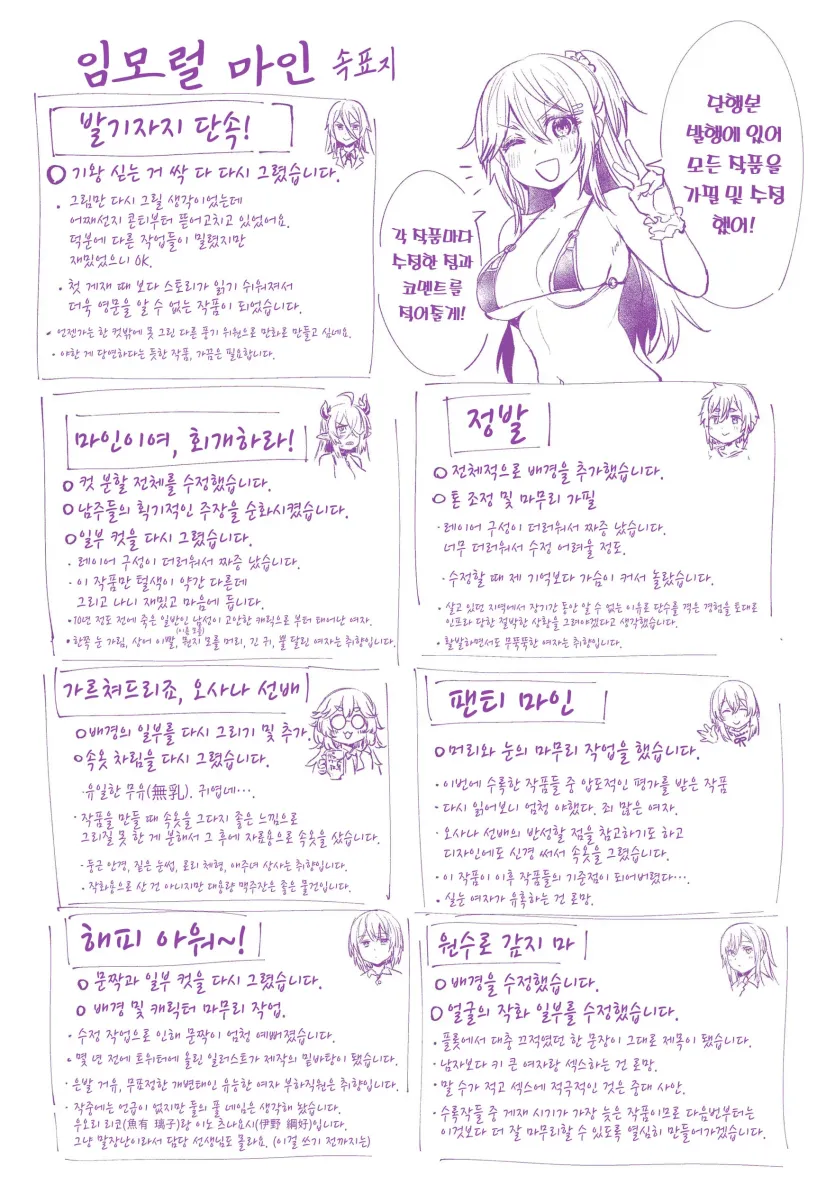 임모럴 마인 속표지
단행본
발행에 있어
모든 작품을
가필 및 수정
했어!
각 작품마다
수정한 점과
코멘트를
적어둘게!
발기자지 단속!
○ 기왕 싣는 거 싹 다 다시 그렸습니다.
· 그림만 다시 그릴 생각이었는데
어째선지 콘티부터 뜯어고치고 있었어요.
덕분에 다른 작업들이 밀렸지만
재밌었으니 OK.
· 첫 게재 때 보다 스토리가 읽기 쉬워져서
더욱 영문을 알 수 없는 작품이 되었습니다.
· 언젠가는 한 컷밖에 못 그린 다른 풍기 위원으로 만화로 만들고 싶네요.
· 야한 게 당연하다는 듯한 작품, 가끔은 필요합니다.
마인이여, 회개하라!
○ 컷 분할 전체를 수정했습니다.
○ 남주들의 획기적인 주장을 순화시켰습니다.
○ 일부 컷을 다시 그렸습니다.
· 레이어 구성이 더러워서 짜증 났습니다.
· 이 작품만 털색이 약간 다른데
그리고 나니 재밌고 마음에 듭니다.
· 10년 정도 전에 죽은 일반인 남성이 고안한 캐릭으로 부터 태어난 여자.
(이름 모를)
· 한쪽 눈 가림, 상어 이빨, 뭔지 모를 머리, 긴 귀, 뿔 달린 여자는 취향입니다.
정발
○ 전체적으로 배경을 추가했습니다.
○ 톤 조정 및 마무리 가필
· 레이어 구성이 더러워서 짜증 났습니다.
너무 더러워서 수정 어려울 정도.
· 수정할 때 제 기억보다 가슴이 커서 놀랐습니다.
· 살고 있던 지역에서 장기간 동안 알 수 없는 이유로 단수를 겪은 경험을 토대로
인프라 단한 절박한 상황을 그려야겠다고 생각했습니다.
· 활발하면서도 무뚝뚝한 여자는 취향입니다.
가르쳐드리죠, 오사나 선배
○ 배경의 일부를 다시 그리기 및 추가.
○ 속옷 차림을 다시 그렸습니다.
· 유일한 무유(無乳). 귀엽네….
· 작품을 만들 때 속옷을 그다지 좋은 느낌으로
그리질 못 한 게 분해서 그 후에 자료용으로 속옷을 샀습니다.
· 둥근 안경, 짙은 눈썹, 로리 체형, 애주녀 상사는 취향입니다.
· 작화용으로 산 건 아니지만 대용량 맥주잔은 좋은 물건입니다.
팬티 마인
○ 머리와 눈의 마무리 작업을 했습니다.
· 이번에 수록한 작품들 중 압도적인 평가를 받은 작품
· 다시 읽어보니 엄청 야했다. 죄 많은 여자.
· 오사나 선배의 반성할 점을 참고하기도 하고
디자인에도 신경 써서 속옷을 그렸습니다.
· 이 작품이 이후 작품들의 기준점이 되어버렸다….
· 실눈 여자가 유혹하는 건 로망.
해피 아워~!
○ 문짝과 일부 컷을 다시 그렸습니다.
○ 배경 및 캐릭터 마무리 작업.
· 수정 작업으로 인해 문짝이 엄청 예뻐졌습니다.
· 몇 년 전에 트위터에 올린 일러스트가 제작의 밑바탕이 됐습니다.
· 은발 거유, 무표정한 개변태인 유능한 여자 부하직원은 취향입니다.
· 작중에는 언급이 없지만 둘의 풀 네임은 생각해 놨습니다.
우오리 리코(魚有 璃子)랑 이노 츠나요시(伊野 綱好)입니다.
그냥 말장난이라서 담당 선생님도 몰라요. (이걸 쓰기 전까지는)
원수로 갚지 마
○ 배경을 수정했습니다.
○ 얼굴의 작화 일부를 수정했습니다.
· 플롯에서 대충 끄적였던 한 문장이 그대로 제목이 됐습니다.
· 남자보다 키 큰 여자랑 섹스하는 건 로망.
· 말 수가 적고 섹스에 적극적인 것은 중대 사안.
· 수록작들 중 게재 시기가 가장 늦은 작품이므로 다음번부터는
이것보다 더 잘 마무리할 수 있도록 열심히 만들어가겠습니다.